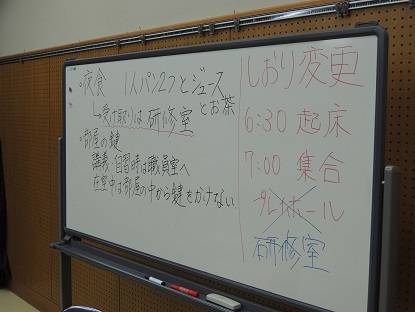 。夜食 1人パン2ケとジュース
とお茶
↳受け取りは研修室
。部屋の鍵
講義・自習時は職員室へ
在室中は部屋の中から鍵をかけない
しおり変更
6:30 起床
7:00 集合
プレイホール
研修室